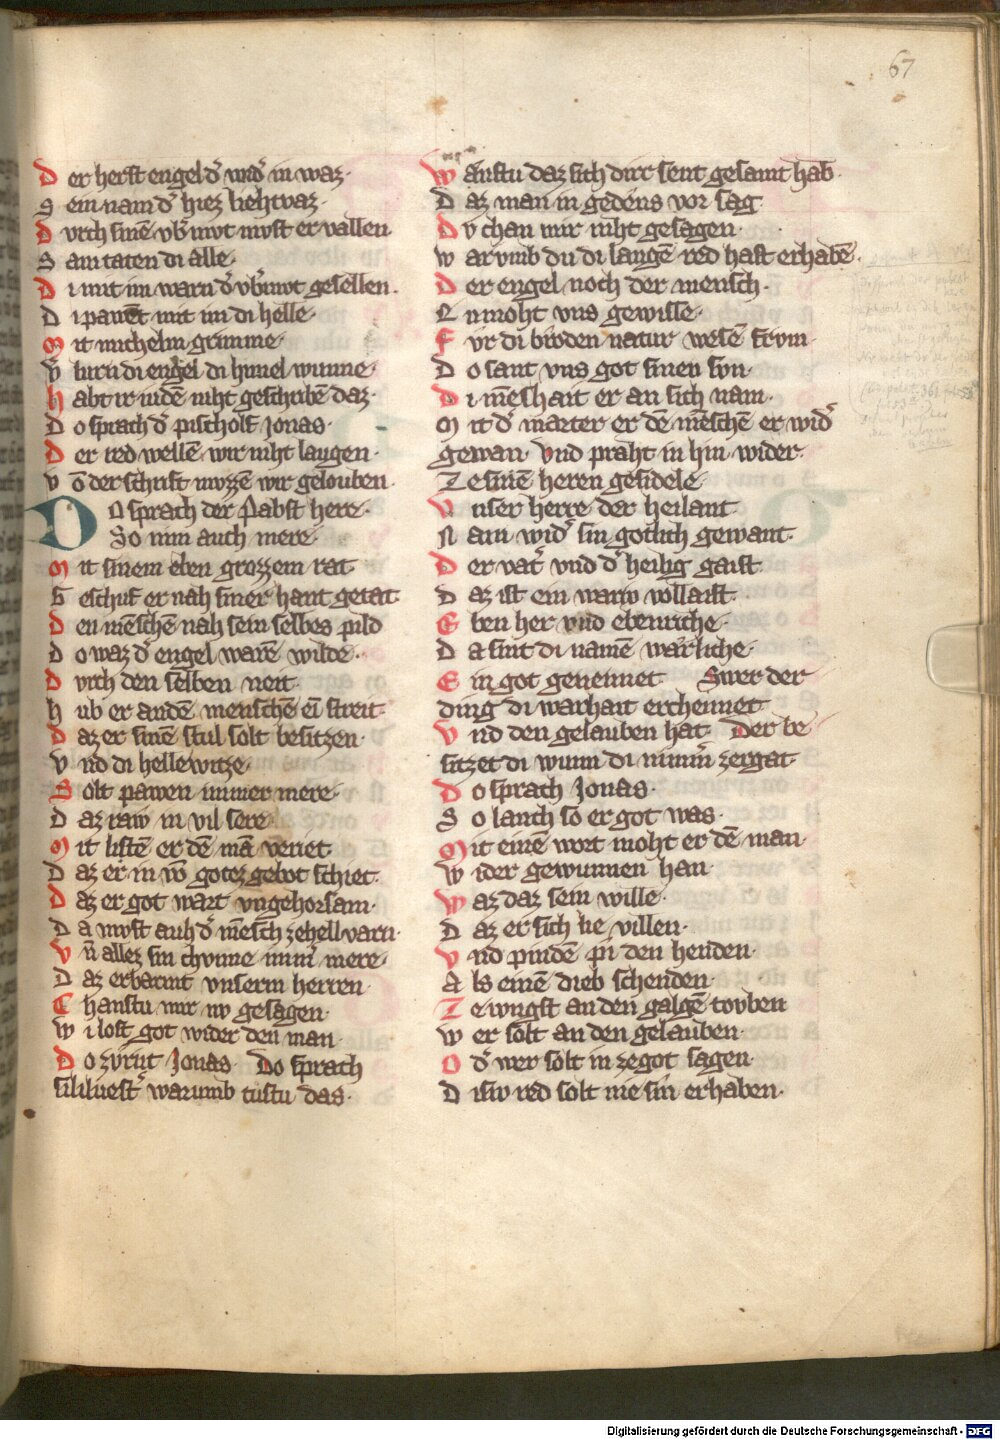 67
D er herst engel d᷑ und᷑ in waz·
S ein nam d᷑ hiez liehtvaz·
D vrch sinē vb᷑mvt mvst er vallen
S am taten di alle·
D i mit im warn d᷑ vb᷑mvt gesellen.
D i pavent mit im di helle·
M it michelm grimme·
v᷑ lurn di engel di himel wunne·
h abt ir indē niht geschribē daz·
D o sprach d᷑ pischolf Jonas·
D er red wellē wir niht laugen·
v ō der schrift mvzzē wir gelouben·
D O sprach der Pabst here·
So nim auch mere·
M it sinem eben grozzem rat
G eschuf er nah siner hant getat
D en mēschē nah sein selbes pild
D o waz d᷑ engel warē wilde·
D vrch den selben neit
h ub er andē menschē eī streit·
D az er sinē stul solt besitzen·
V nd di hellewitze·
S olt pawen immer mere·
D az raw in vil sere
M it listē er dē mā verriet
D az er in vō gotez gebot schiet·
D az er got wart vngehorsam·
D a mvst auh d᷑ mēsch zehell varn·
V n̄ allez sin chvnne imm᷑ mere·
D az erbarmt vnserm herren·
C hanstu mir nv gesagen·
W i lost got wider den man·
D o zvrnt Jonas· Do sprach
siliuest᷑ warumb tustu das·
W anstu daz sich dirr sent gesamt hab·
D az man in gedens vor sag
D v chan mir niht gesagen·
W arvmb du di langē red hast erhabē·
D er engel noch der mensch·
E nmoht vns gewisse·
F vr di bvrden natur wesē frvm·
D o sant vns got sinen svn·
D i mēshait er an sich nam·
M it d᷑ marter er dē mēschē er wid᷑
gewan· vnd praht in hin wider·
Z e sinē heren gesidele·
V nser herre der heilant
N am wid᷑ sin gotlich gewant·
D er vat᷑ vnd d᷑ heilig gaist
D az ist ein warev vollaist·
E ben her vnd ebenriche·
D a sint di namē wærliche·
E in got genennet Swer der
ding di warhait erchennet
V nd den gelauben hat· Der be
sitzet di wunn di nimm᷑ zergat·
D o sprach Jonas·
S o lanch so er got was·
M it einē wort moht er dē man·
W ider gewunnen han·
W az daz sein wille·
D az er sich lie villen·
V nd pindē pi den henden·
A ls einē dieb schenden·
Z e ivngst an den galgē tovben
W er solt an den gelauben·
O d᷑ wer solt in zegot sagen·
D isiv red solt nie sin erhaben·
Digitalisierung gefördert durch die Deutsche Forschungsgemeinschaft - DFG